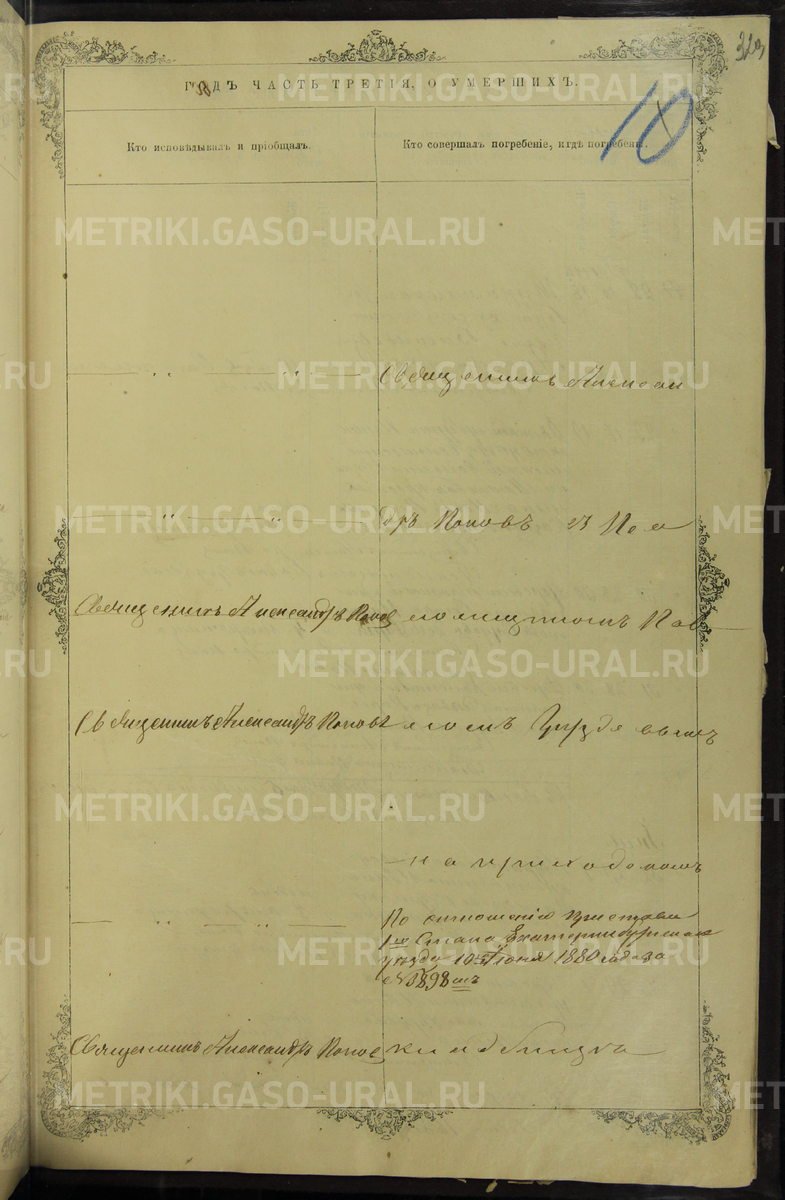 323
ГОДЪ ЧАСТЬ ТРЕТІЯ, О УМЕРШИХЪ.
10
Кто исповѣдывалъ и пріобщалъ.
Кто совершалъ погребеніе, и гдѣ погребены.
Священникъ Алексан
дръ Поповъ
Священникъ Александръ Попов
Священникъ Александръ Поповъ
на приходскомъ
По отношенію Пристава
1го Стана Екатеринбургскаго
уѣзда 10 Іюня 1880 года за
№
Священникъ Александръ Попов
кладбищѣ
METRIKI.GASO-URAL.RU